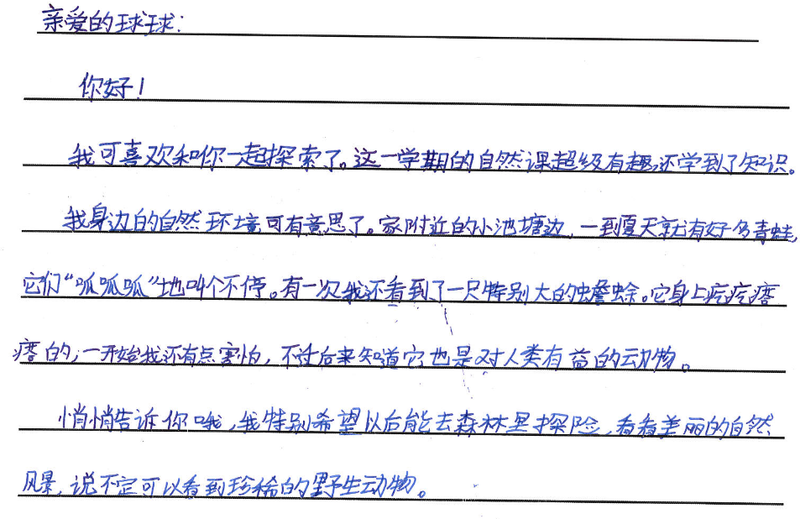 亲爱的球球：
你好！
我可喜欢和你一起探索了。这一学期的自然课超级有趣，还学到了知识。
我身边的自然环境可有意思了。家附近的小池塘边，一到夏天就有好多青蛙，
它们“呱呱呱”地叫个不停。有一次我还看到了一只特别大的蟾蜍。它身上疙疙瘩
瘩的，一开始我还有点害怕，不过后来知道它也是对人类有益的动物。
悄悄告诉你哦，我特别希望以后能去森林里探险，看看美丽的自然
风景，说不定可以看到珍稀的野生动物。